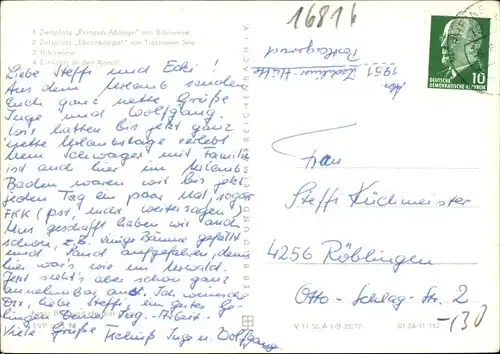 1 Zeltplatz „Prinzen-Ablage" am Dikowsee
2 Zeltplatz „Ekornkappel" am Tiesower See
3 Dikowsee
4 Einlaß in den Kanal
Liebe Steffi und Ecki!
Aus dem Urlaub senden
Euch ganz nette Grüße
Inge und Wolfgang.
Wir hatten bis jetzt ganz
nette Urlaubstage verlebt
Mein Schwager mit Familie
ist auch hier im Urlaub
Baden waren wir bis jetzt
jeden Tag ein paar Mal, sogar
FKK (pst, nicht weitersagen)
Was geschafft haben wir auch
schon, z.B. einige Bäume gefällt
und Sand aufgefahren, denn
hier war's wie im Urwald.
Jetzt sieht's aber schon ganz
annehmbar aus. Ich wünsche
Dir, liebe Steffi, ein gutes Ge-
lingen Deiner Tag. Arbeit.
Viele Grüße Tschüß Inge u. Wolfgang
EVP
BILD UND HEIMAT REICHENBACH I. V.
16816
1951
10
DEUTSCHE
DEMOKRATISCHE REPUBLIK
Frau
Steffi Küchmeister
4256 Röblingen
Otto-Schlag-Str. 2
-130
V 11 50 A 1/B 22/72
01 04 11 112